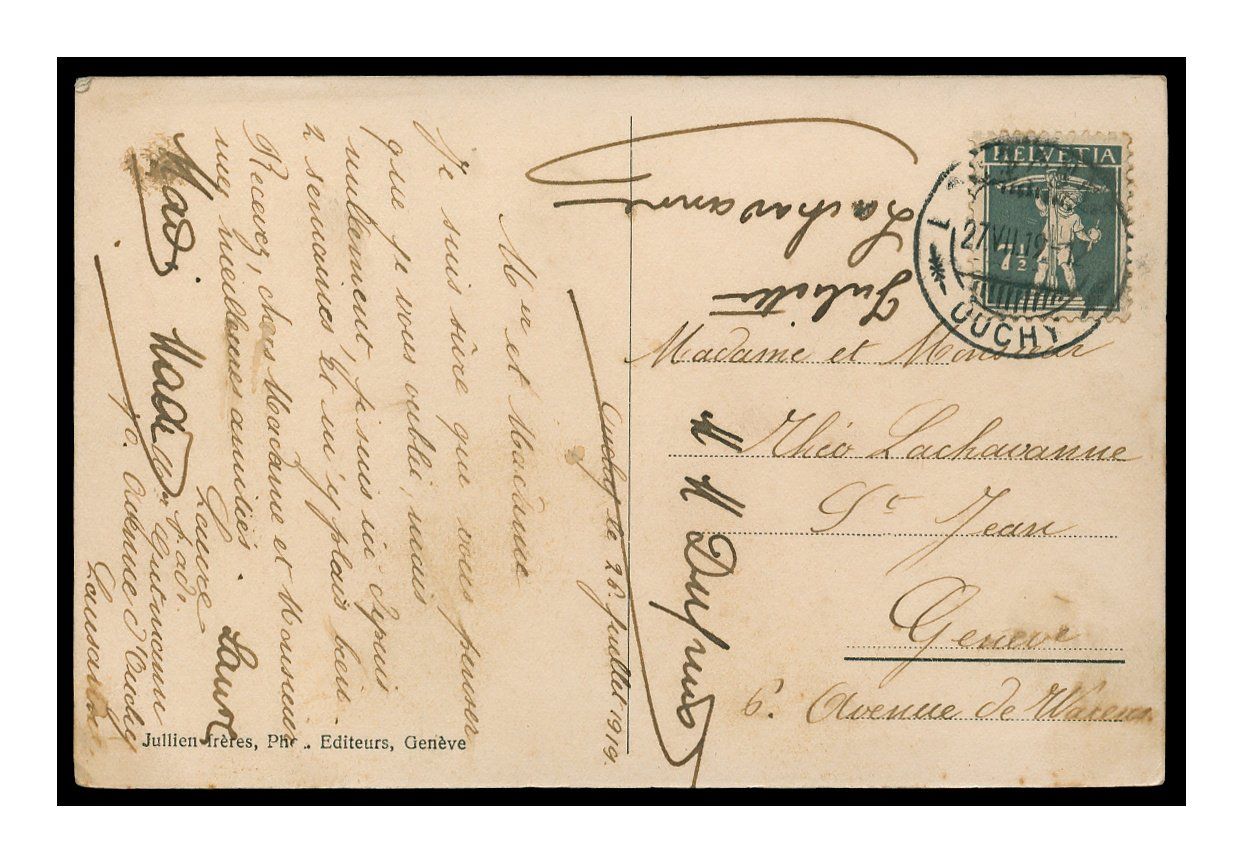 Ouchy le 26. Juillet 1919.
Mr et Madame
Je suis sûre que vous pensez
que je vous oublie, mais
nullement, je suis ici depuis
2 semaines et m'y plais bien.
Recevez, chers Madame et Monsieur
mes meilleures amitiés.
Laure
Laure
Madi
Avenue d'Ouchy
Lausanne
Jullien frères, Editeurs, Genève
HELVETIA
7½
27.VII.19
OUCHY
Juliette
Lachavanne
Madame et Monsieur
Théo Lachavanne
St Jean
Genève
6. Avenue de Warens
M M Dupuis